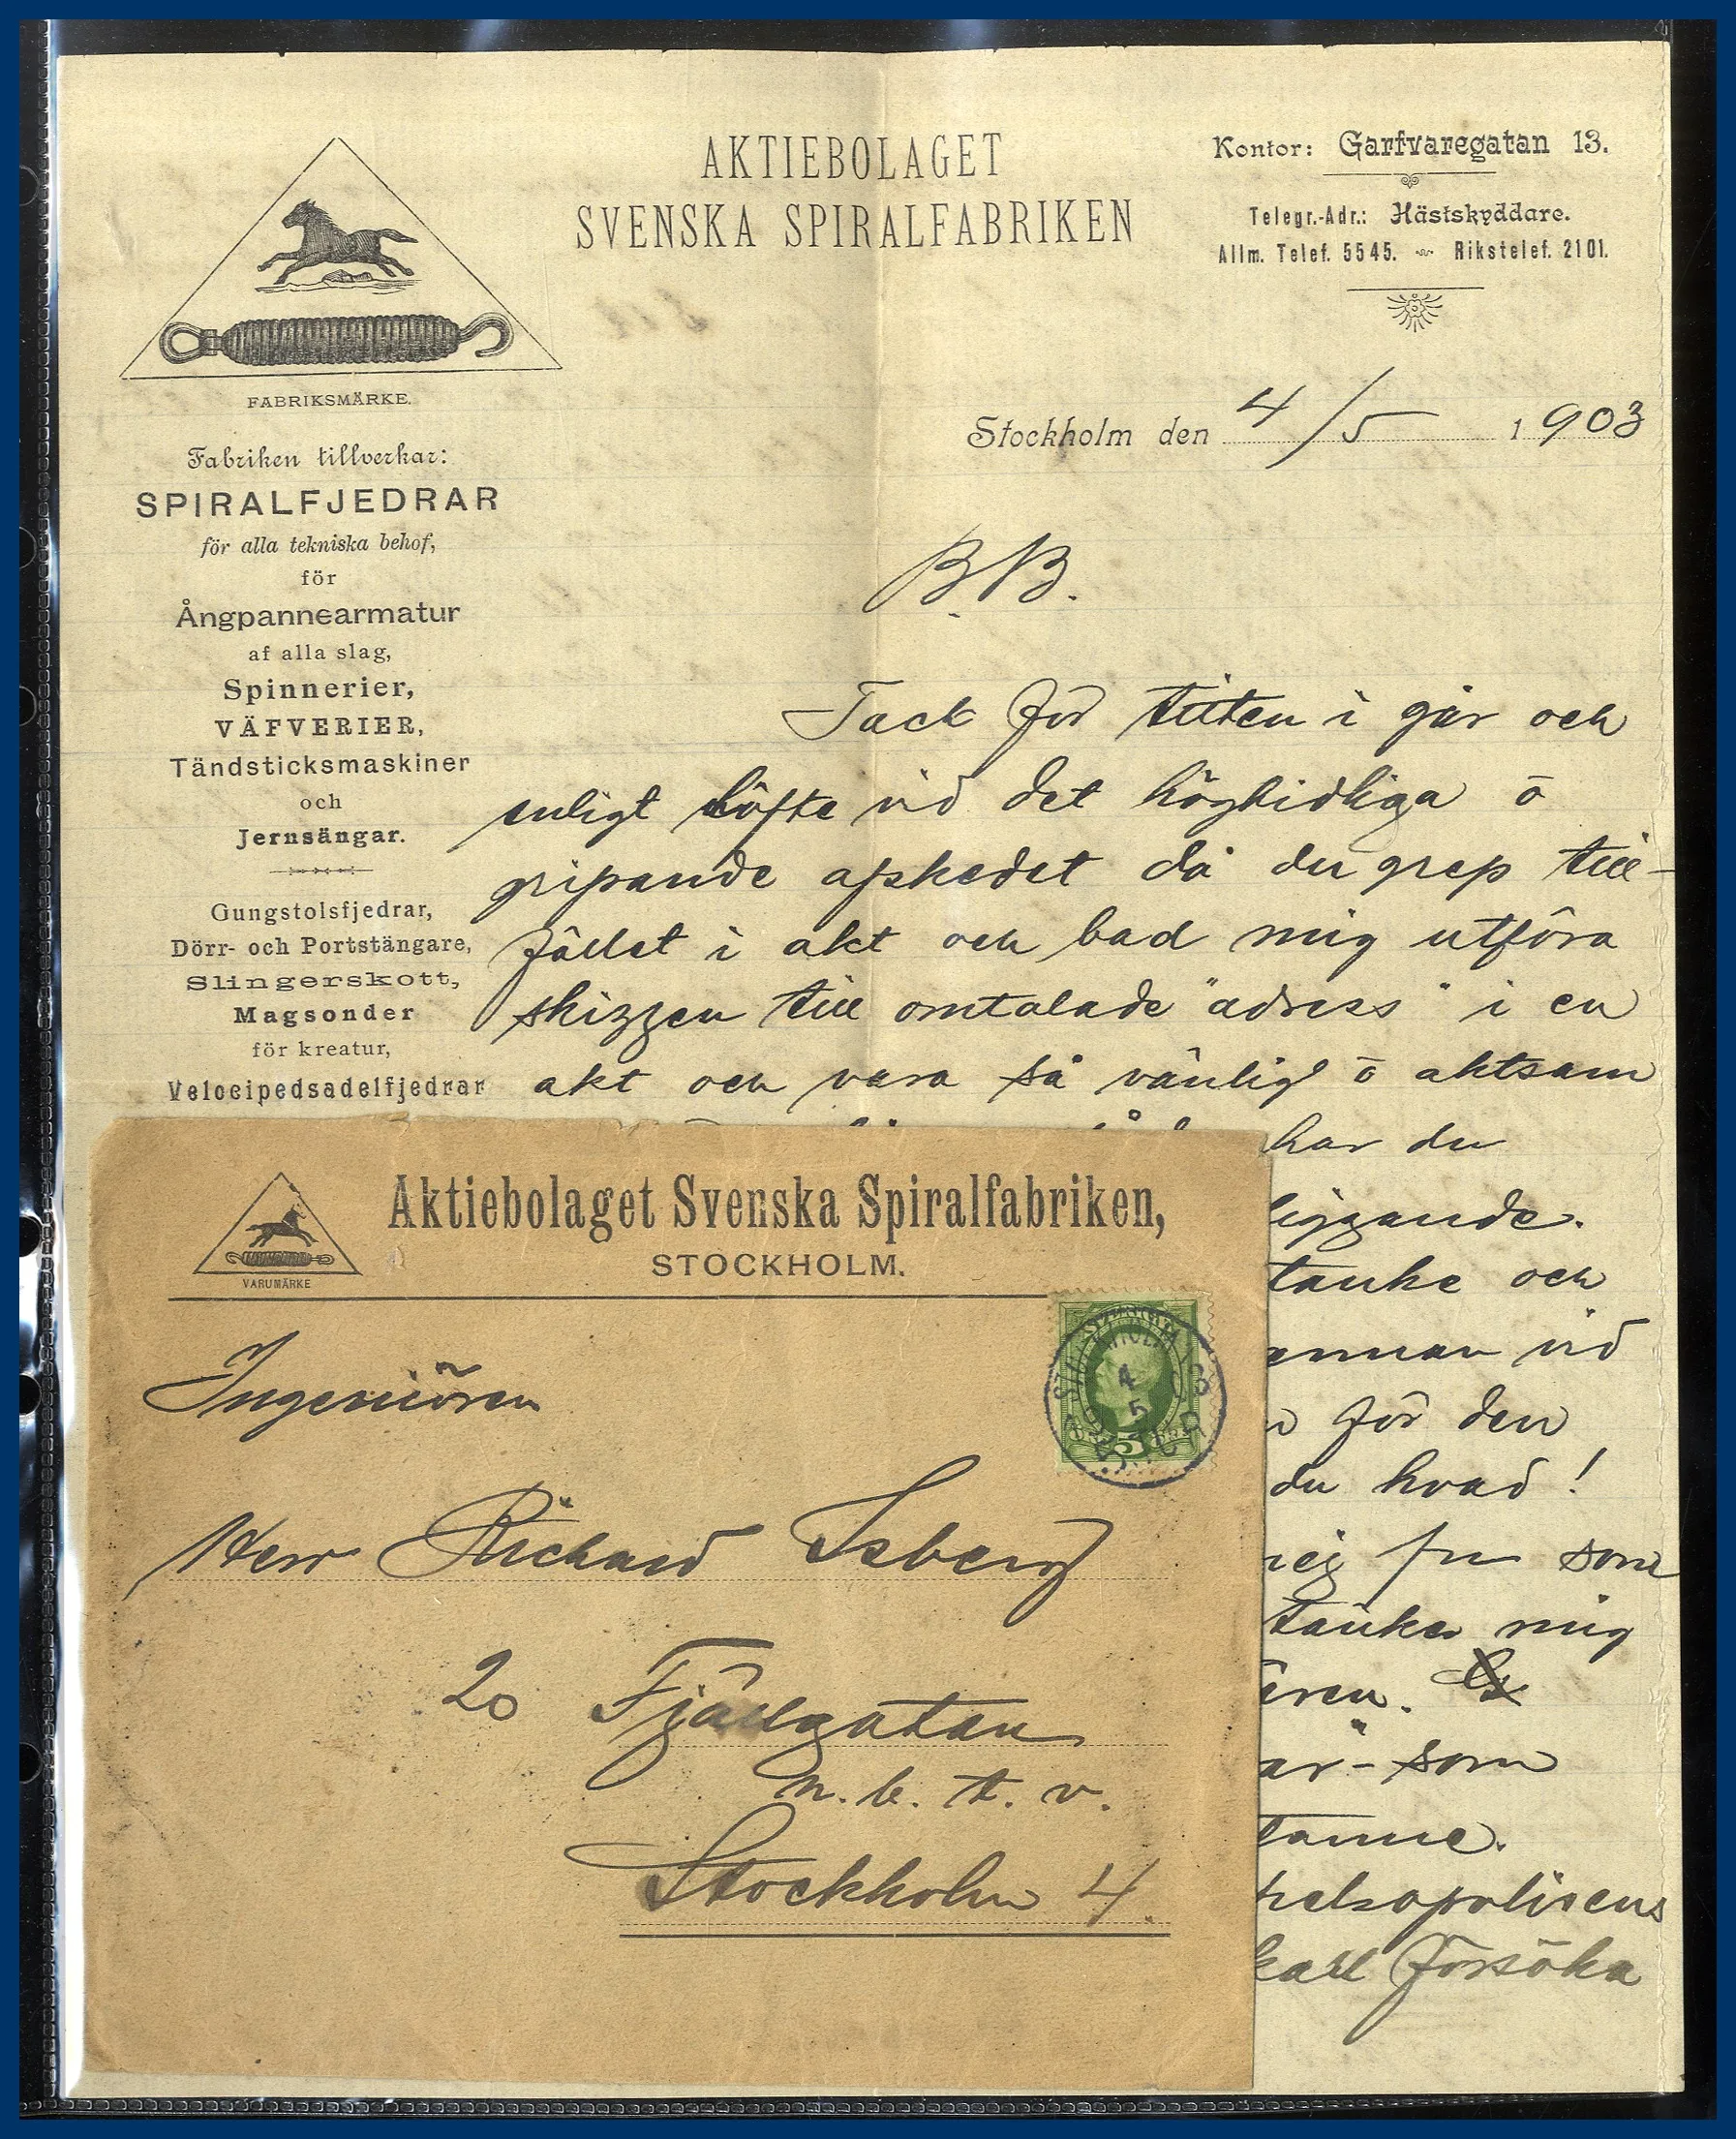 AKTIEBOLAGET
SVENSKA SPIRALFABRIKEN
Kontor: Garfvaregatan 13.
Telegr.-Adr.: Hästskyddare.
Allm. Telef. 5545. Rikstelef. 2101.
FABRIKSMÄRKE.
Fabriken tillverkar:
SPIRALFJEDRAR
för alla tekniska behof,
för
Ångpannearmatur
af alla slag,
Spinnerier,
VÄFVERIER,
Tändsticksmaskiner
och
Jernsängar.
Gungstolsfjedrar,
Dörr- och Portstängare,
Slingerskott,
Magsonder
för kreatur,
Velocipedsadelfjedrar
Stockholm den 4/5 1903
B.B.
Tack för titten i går och
enligt löfte vid det högtidliga o
gripande afskedet då du grep till-
fället i akt och bad mig utföra
skizzen till omtalade "adress" i en
akt och vara så vänlig o aktsam
har du
liggande.
tanke och
annan vid
för den
du hvad !
mig fru som
tänker mig
ären.
är - som
helsopolisens
karl försöka
Aktiebolaget Svenska Spiralfabriken,
STOCKHOLM.
VARUMÄRKE
SVERIGE
4
5
5
ÖRE
Ingeniören
Herr Richard Isberg
20 Fjällgatan
n. b. t. v.
Stockholm 4.